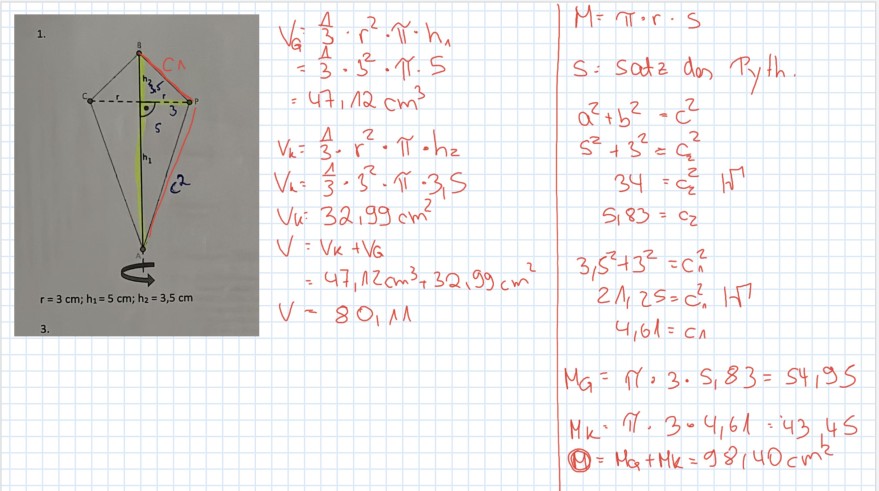 1.
B
C1
h₂ 3,5
C r r P
3
5
h₁
c²
A
r = 3 cm; h₁ = 5 cm; h₂ = 3,5 cm
3.
V_G = 1/3 · r² · π · h₁
= 1/3 · 3² · π · 5
= 47,12 cm³
V_k = 1/3 · r² · π · h₂
V_k = 1/3 · 3² · π · 3,5
V_k = 32,99 cm²
V = V_k + V_G
= 47,12 cm³ + 32,99 cm²
V = 80,11
M = π · r · s
s = Satz des Pyth.
a² + b² = c²
5² + 3² = c₂²
34 = c₂² |√
5,83 = c₂
3,5² + 3² = c₁²
21,25 = c₁² |√
4,61 = c₁
M_G = π · 3 · 5,83 = 54,95
M_K = π · 3 · 4,61 = 43,45
M = M_G + M_K = 98,40 cm²